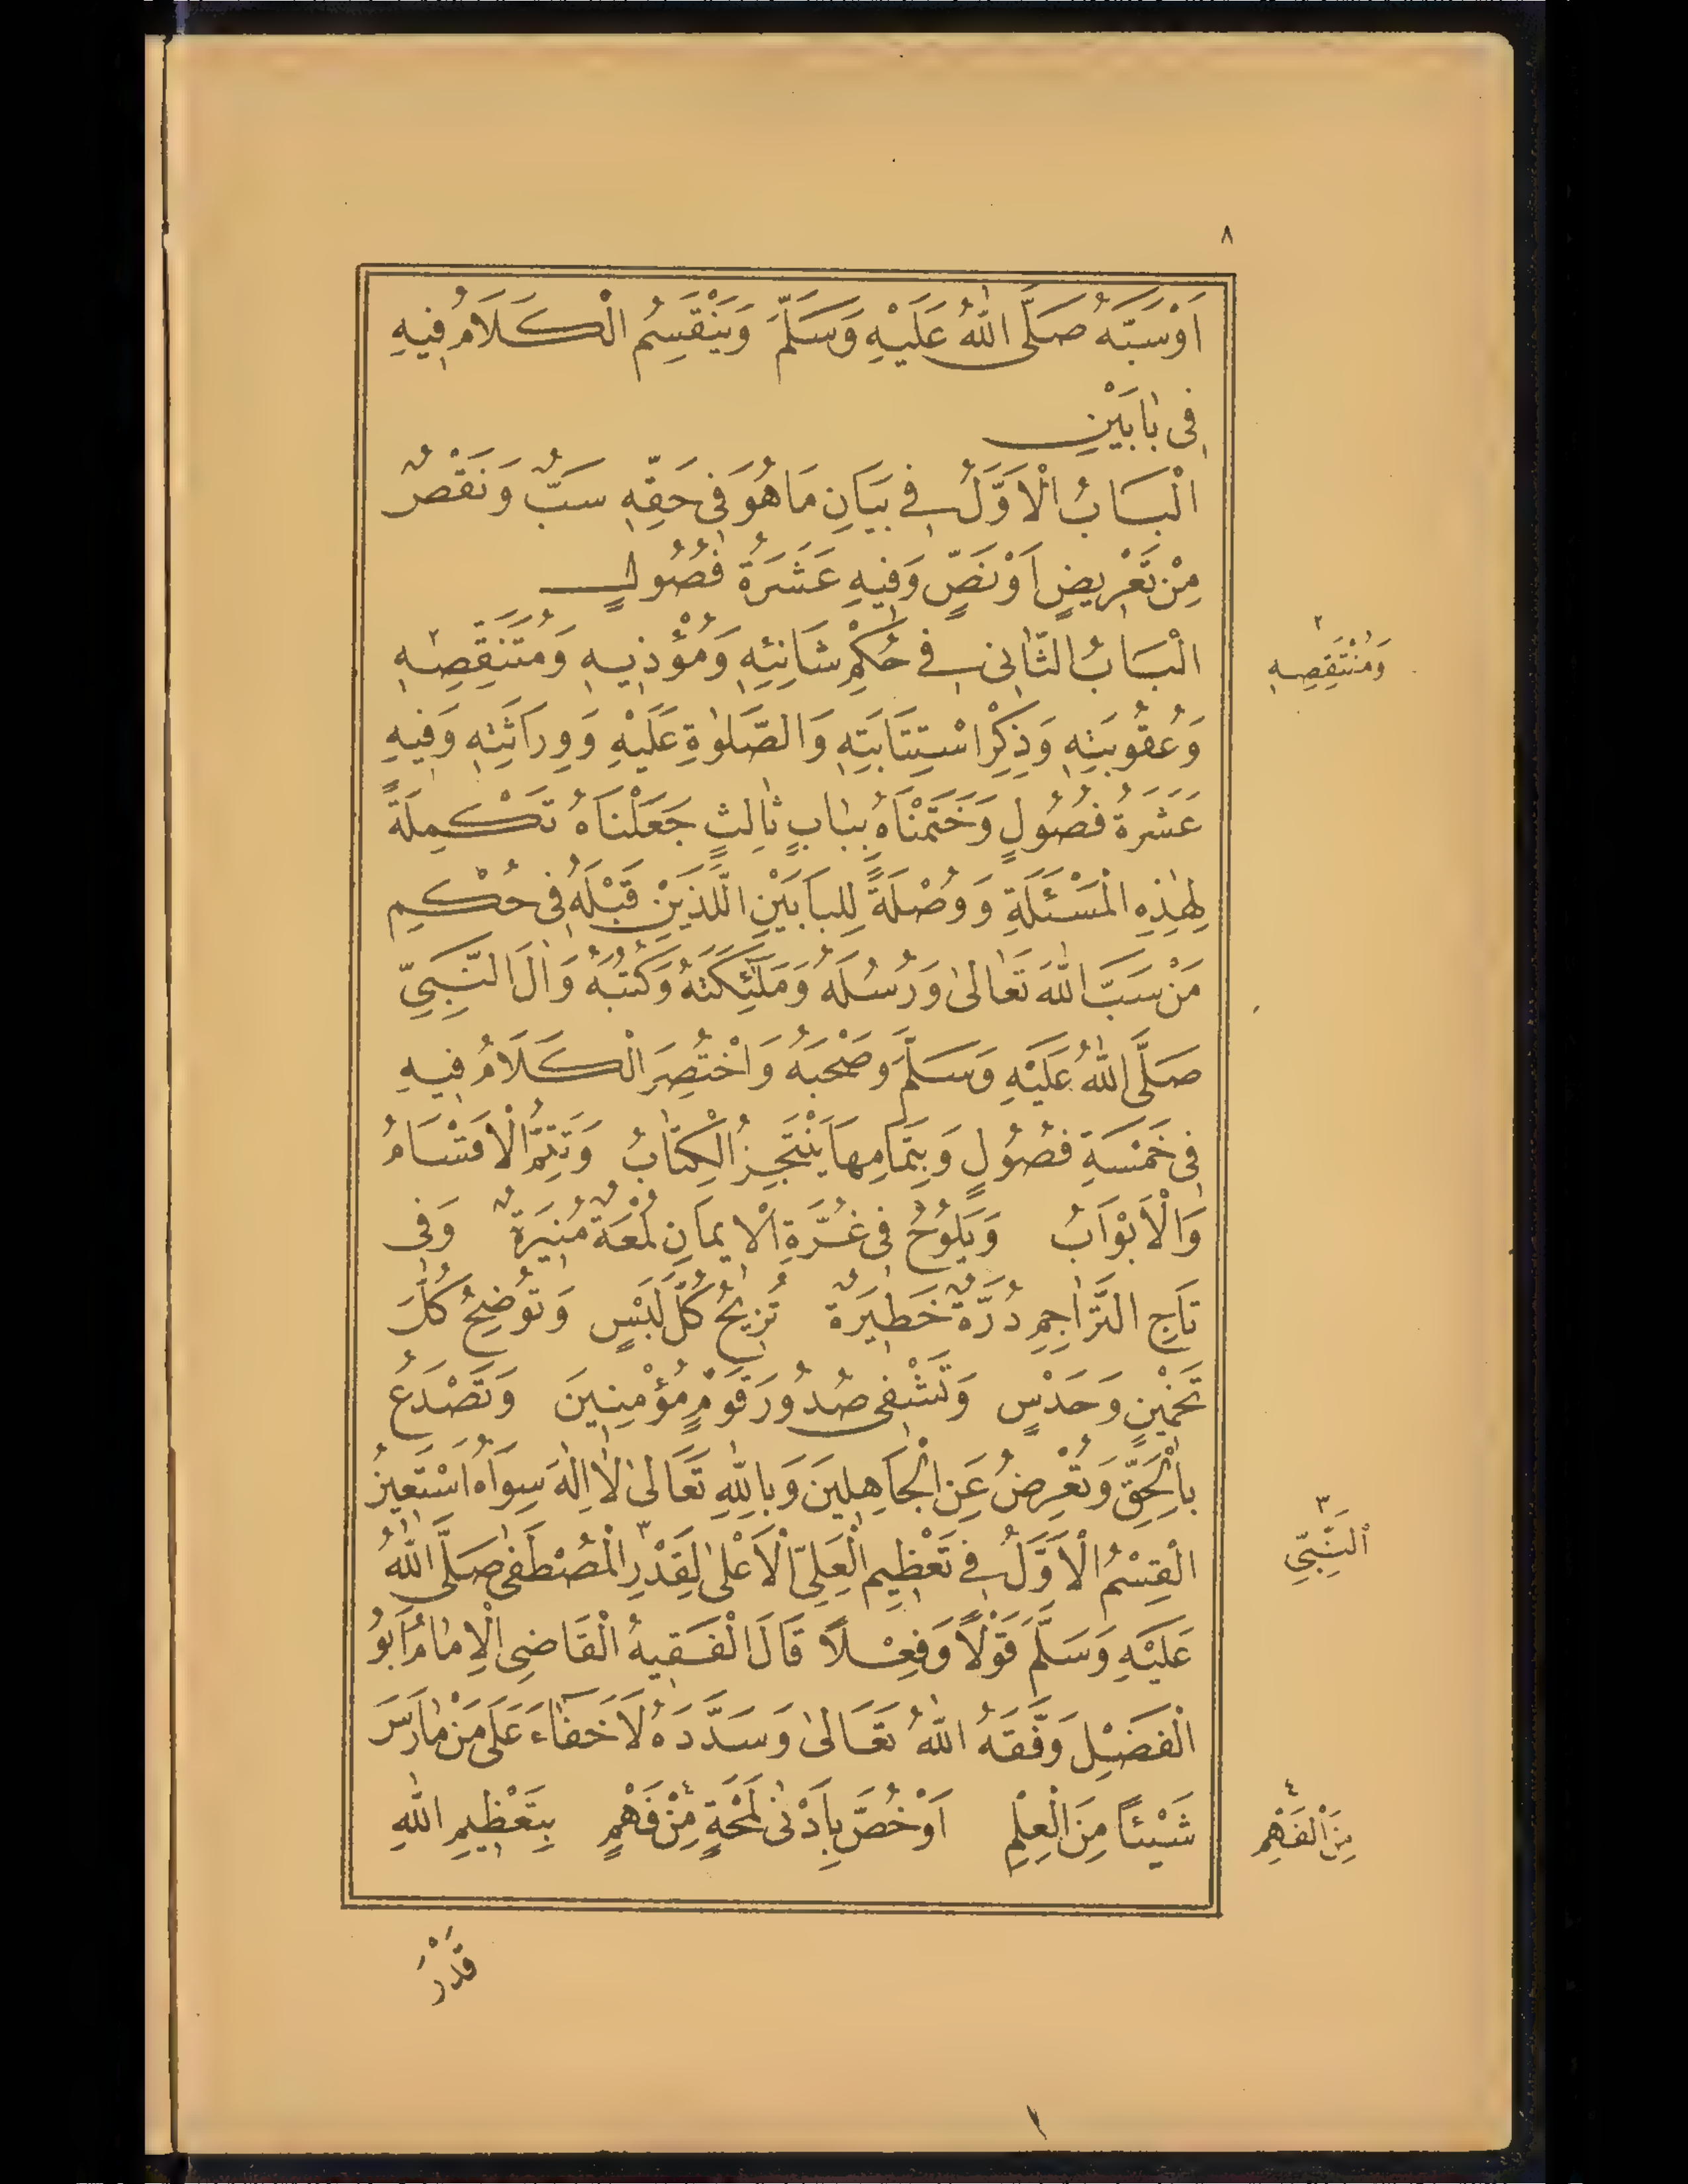 ٨
اَوْسَبَّهُ صَلَّى اللهُ عَلَيْهِ وَسَلَّمَ وَيَنْقَسِمُ الْكَلَامُ فِيهِ
فِى بَابَيْنِ
الْبَابُ الْاَوَّلُ فِى بَيَانِ مَاهُوَ فِى حَقِّهِ سَبٌّ وَنَقْصٌ
مِنْ تَعْرِيضٍ اَوْ نَصٍّ وَفِيهِ عَشَرَةُ فُصُولٍ
الْبَابُ الثَّانِى فِى حُكْمِ شَانِئِهِ وَمُؤْذِيهِ وَمُتَنَقِّصِهِ ٢
وَمُنْتَقِصِهِ ٢
وَعُقُوبَتِهِ وَذِكْرِ اسْتِتَابَتِهِ وَالصَّلٰوةِ عَلَيْهِ وَوِرَاثَتِهِ وَفِيهِ
عَشَرَةُ فُصُولٍ وَخَتَمْنَاهُ بِبَابٍ ثَالِثٍ جَعَلْنَاهُ تَكْمِلَةً
لِهٰذِهِ الْمَسْئَلَةِ وَوُصْلَةً لِلْبَابَيْنِ اللَّذَيْنِ قَبْلَهُ فِى حُكْمِ
مَنْ سَبَّ اللهَ تَعَالٰى وَرُسُلَهُ وَمَلٰئِكَتَهُ وَكُتُبَهُ وَاٰلَ النَّبِيِّ
صَلَّى اللهُ عَلَيْهِ وَسَلَّمَ وَصَحْبَهُ وَاخْتُصِرَ الْكَلَامُ فِيهِ
فِى خَمْسَةِ فُصُولٍ وَبِتَمَامِهَا يَنْتَجِزُ الْكِتَابُ وَتَتِمُّ الْاَقْسَامُ
وَالْاَبْوَابُ وَيَلُوحُ فِى غُرَّةِ الْاِيمَانِ لُمْعَةٌ مُنِيرَةٌ وَفِى
تَاجِ التَّرَاجِمِ دُرَّةٌ خَطِيرَةٌ تُزِيحُ كُلَّ لَبْسٍ وَتُوضِحُ كُلَّ
تَخْمِينٍ وَحَدْسٍ وَتَشْفِى صُدُورَ قَوْمٍ مُؤْمِنِينَ وَتَصْدَعُ
بِالْحَقِّ وَتُعْرِضُ عَنِ الْجَاهِلِينَ وَبِاللهِ تَعَالٰى لَا اِلٰهَ سِوَاهُ اَسْتَعِينُ
الْقِسْمُ الْاَوَّلُ فِى تَعْظِيمِ الْعَلِيِّ الْاَعْلٰى لِقَدْرِ ٣ الْمُصْطَفٰى صَلَّى اللهُ
٣ اَلنَّبِيِّ
عَلَيْهِ وَسَلَّمَ قَوْلًا وَفِعْلًا قَالَ الْفَقِيهُ الْقَاضِى الْاِمَامُ اَبُو
الْفَضْلِ وَفَّقَهُ اللهُ تَعَالٰى وَسَدَّدَهُ لَا خَفَاءَ عَلٰى مَنْ مَارَسَ
شَيْئًا مِنَ الْعِلْمِ اَوْ خُصَّ بِاَدْنٰى لَمْحَةٍ ٤ مِنْ فَهْمٍ بِتَعْظِيمِ اللهِ
٤ مِنَ الْفَهْمِ
قَدْرَ